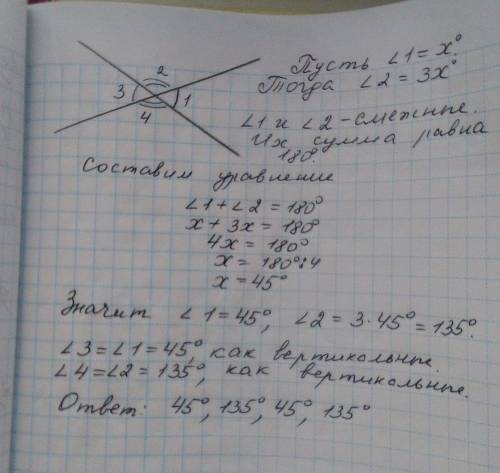 2
3
1
4
Пусть ∠1 = x°
Тогда ∠2 = 3x°
∠1 и ∠2 - смежные.
Их сумма равна
180°.
Составим уравнение
∠1 + ∠2 = 180°
x + 3x = 180°
4x = 180°
x = 180°:4
x = 45°
Значит ∠1 = 45°, ∠2 = 3·45° = 135°.
∠3 = ∠1 = 45°, как вертикальные.
∠4 = ∠2 = 135°, как вертикальные.
Ответ: 45°, 135°, 45°, 135°